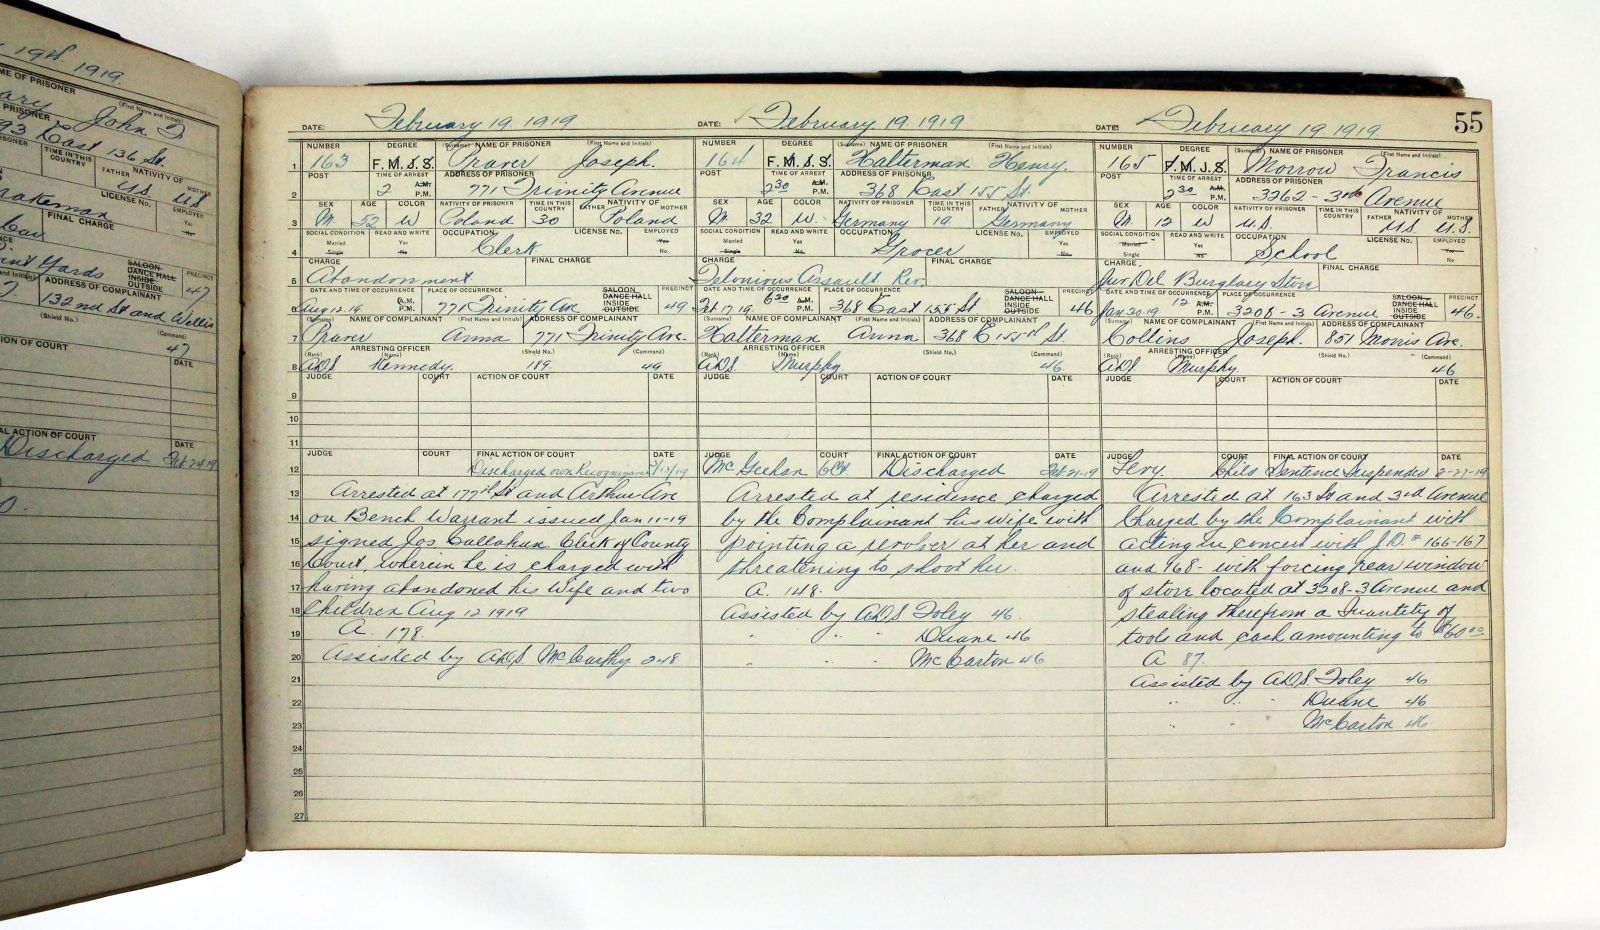 19th 1919.
NAME OF PRISONER
(First Name and Initials)
John J
PRISONER
93 East 136 St.
TIME IN THIS COUNTRY
NATIVITY OF
FATHER
MOTHER
US
US
Brakeman
LICENSE No.
EMPLOYED
Yes
No
FINAL CHARGE
Yards
SALOON
DANCE HALL
INSIDE
OUTSIDE
PRECINCT
47
ADDRESS OF COMPLAINANT
132nd St and Willis
(Shield No.)
(Command)
47
ACTION OF COURT
DATE
FINAL ACTION OF COURT
DATE
Discharged
55
DATE: February 19. 1919
NUMBER DEGREE (Surname) NAME OF PRISONER (First Name and Initials)
1 163 F. M. J. S. Praver Joseph
POST TIME OF ARREST ADDRESS OF PRISONER
2 2 A.M. P.M. 771 Trinity Avenue
SEX AGE COLOR NATIVITY OF PRISONER TIME IN THIS COUNTRY FATHER NATIVITY OF MOTHER
3 M 52 W Poland 30 Poland
SOCIAL CONDITION READ AND WRITE OCCUPATION LICENSE No. EMPLOYED
Married Yes Clerk Yes
4 Single No No
CHARGE FINAL CHARGE
5 Abandonment
DATE AND TIME OF OCCURRENCE PLACE OF OCCURRENCE SALOON DANCE HALL INSIDE OUTSIDE PRECINCT
6 Aug 12.19 A.M. P.M. 771 Trinity Ave 49
(Surname) NAME OF COMPLAINANT (First Name and Initials) ADDRESS OF COMPLAINANT
7 Praver Anna 771 Trinity Ave.
(Rank) ARRESTING OFFICER (Name) (Shield No.) (Command)
8 ADS Kennedy. 189. 49
JUDGE COURT ACTION OF COURT DATE
9
10
11
JUDGE COURT FINAL ACTION OF COURT DATE
12 Discharged own Recognizance
13 Arrested at 177th St and Arthur Ave
14 on Bench Warrant issued Jan 11-19
15 signed Jos Callahan Clerk of County
16 Court, wherein he is charged with
17 having abandoned his Wife and two
18 Children Aug 12 1919
19 A. 178.
20 Assisted by ADS McCarthy 248
21
22
23
24
25
26
27
DATE: February 19. 1919
NUMBER DEGREE (Surname) NAME OF PRISONER (First Name and Initials)
164 F. M. J. S. Halterman Henry.
POST TIME OF ARREST ADDRESS OF PRISONER
2 30 A.M. P.M. 368 East 155 St.
SEX AGE COLOR NATIVITY OF PRISONER TIME IN THIS COUNTRY FATHER NATIVITY OF MOTHER
M 32 W. Germany 19 Germany
SOCIAL CONDITION READ AND WRITE OCCUPATION LICENSE No. EMPLOYED
Married Yes Grocer Yes
Single No No
CHARGE FINAL CHARGE
Felonious Assault Rev.
DATE AND TIME OF OCCURRENCE PLACE OF OCCURRENCE SALOON DANCE HALL INSIDE OUTSIDE PRECINCT
Feb 17.19. 6 30 A.M. P.M. 368 East 155 St. 46
(Surname) NAME OF COMPLAINANT (First Name and Initials) ADDRESS OF COMPLAINANT
Halterman Anna 368 E 155th St.
(Rank) ARRESTING OFFICER (Name) (Shield No.) (Command)
ADS. Murphy. 46.
JUDGE COURT ACTION OF COURT DATE
JUDGE COURT FINAL ACTION OF COURT DATE
McGeehan 6 Discharged Feb-21-19
Arrested at residence, charged
by the Complainant his wife with
pointing a revolver at her and
threatening to shoot her.
A. 148.
Assisted by ADS Foley 46.
" " " Duane 46
" " " McCarton 46
DATE: February 19. 1919.
NUMBER DEGREE (Surname) NAME OF PRISONER (First Name and Initials)
165 F. M. J. S. Morrow Francis
POST TIME OF ARREST ADDRESS OF PRISONER
2 30 A.M. P.M. 3262 - 3rd Avenue
SEX AGE COLOR NATIVITY OF PRISONER TIME IN THIS COUNTRY FATHER NATIVITY OF MOTHER
M 12 W U.S. US U.S.
SOCIAL CONDITION READ AND WRITE OCCUPATION LICENSE No. EMPLOYED
Married Yes School Yes
Single No No
CHARGE FINAL CHARGE
Juv Del Burglary Store
DATE AND TIME OF OCCURRENCE PLACE OF OCCURRENCE SALOON DANCE HALL INSIDE OUTSIDE PRECINCT
Jan 30-19 12 A.M. P.M. 3208 - 3 Avenue 46.
(Surname) NAME OF COMPLAINANT (First Name and Initials) ADDRESS OF COMPLAINANT
Collins Joseph. 851 Morris Ave.
(Rank) ARRESTING OFFICER (Name) (Shield No.) (Command)
ADS. Murphy. 46
JUDGE COURT ACTION OF COURT DATE
JUDGE COURT FINAL ACTION OF COURT DATE
Levy. Childs Sentence Suspended 2-27-19
Arrested at 163 St and 3rd Avenue
Charged by the Complainant with
acting in concert with J.D. # 166-167
and 168 - with forcing rear window
of store located at 3208-3 Avenue and
stealing therefrom a Quantity of
tools and cash amounting to $60.00
A 87.
Assisted by ADS. Foley 46
" " " Duane 46
" " McCarton 46